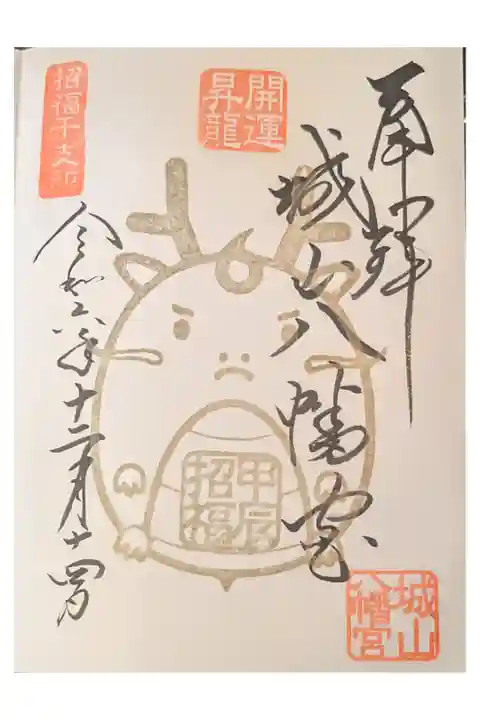 奉拝
城山八幡宮
城山
八幡宮
開運
昇龍
甲辰
招福
招福干支印
令和六年十二月十四日